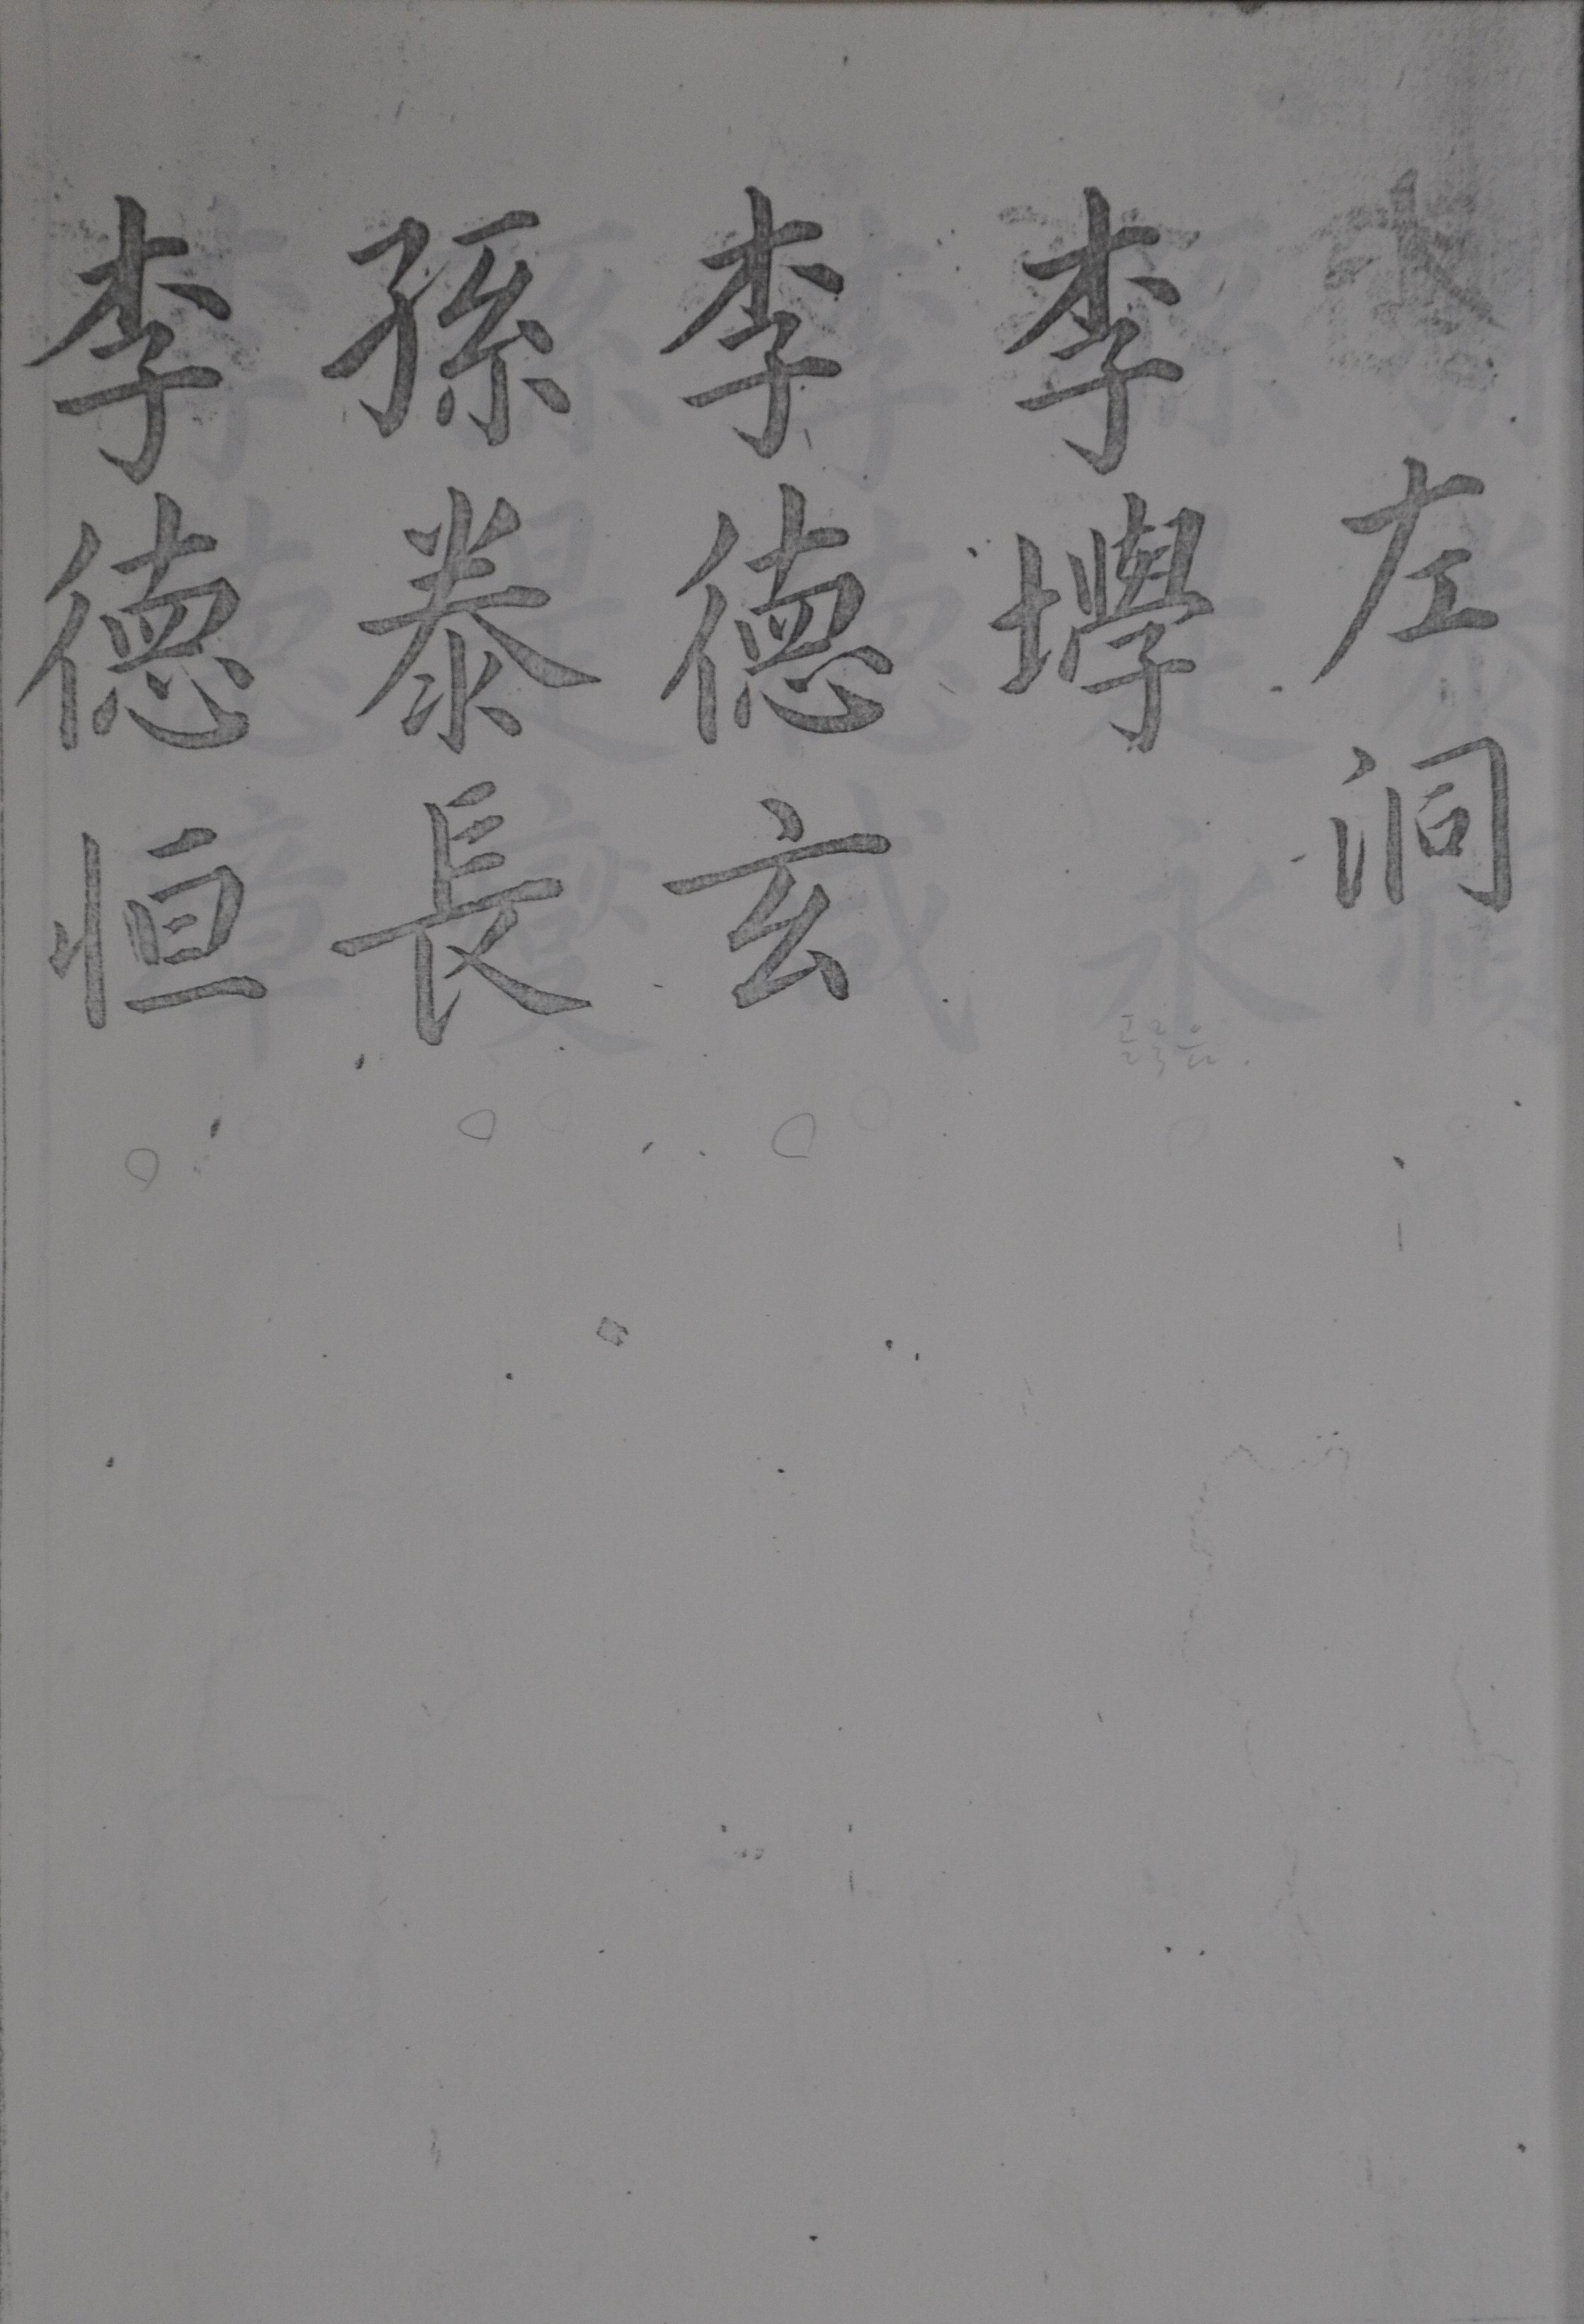 左洞
李壆
李德玄
孫泰長
李德恒